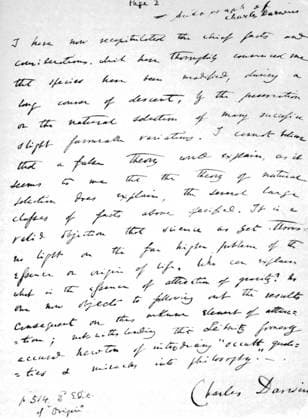 Page 2
— Autograph of
Charles Darwin
I have now recapitulated the chief facts and
considerations, which have thoroughly convinced me
that species have been modified, during a
long course of descent, by the preservation
or the natural selection of many successive
slight favourable variations. I cannot believe
that a false theory would explain, as it
seems to me that the theory of natural
selection does explain, the several large
classes of facts above specified. It is no
valid objection that science as yet throws
no light on the far higher problem of the
essence or origin of life. Who can explain
what is the essence of attraction of gravity? No
one now objects to following out the results
consequent on this unknown element of attrac-
-tion; notwithstanding that Leibnitz formerly
accused Newton of introducing "occult quali-
-ties & miracles into philosophy". —
Charles Darwin
p 514. Edit.
of "Origin"